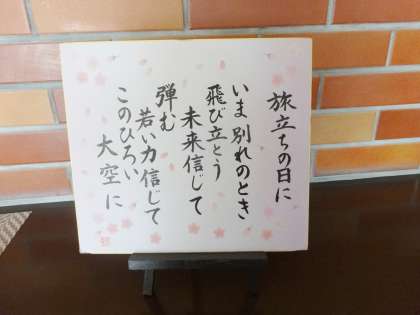 旅立ちの日に
いま別れのとき
飛び立とう
未来信じて
弾む
若い力信じて
このひろい
大空に